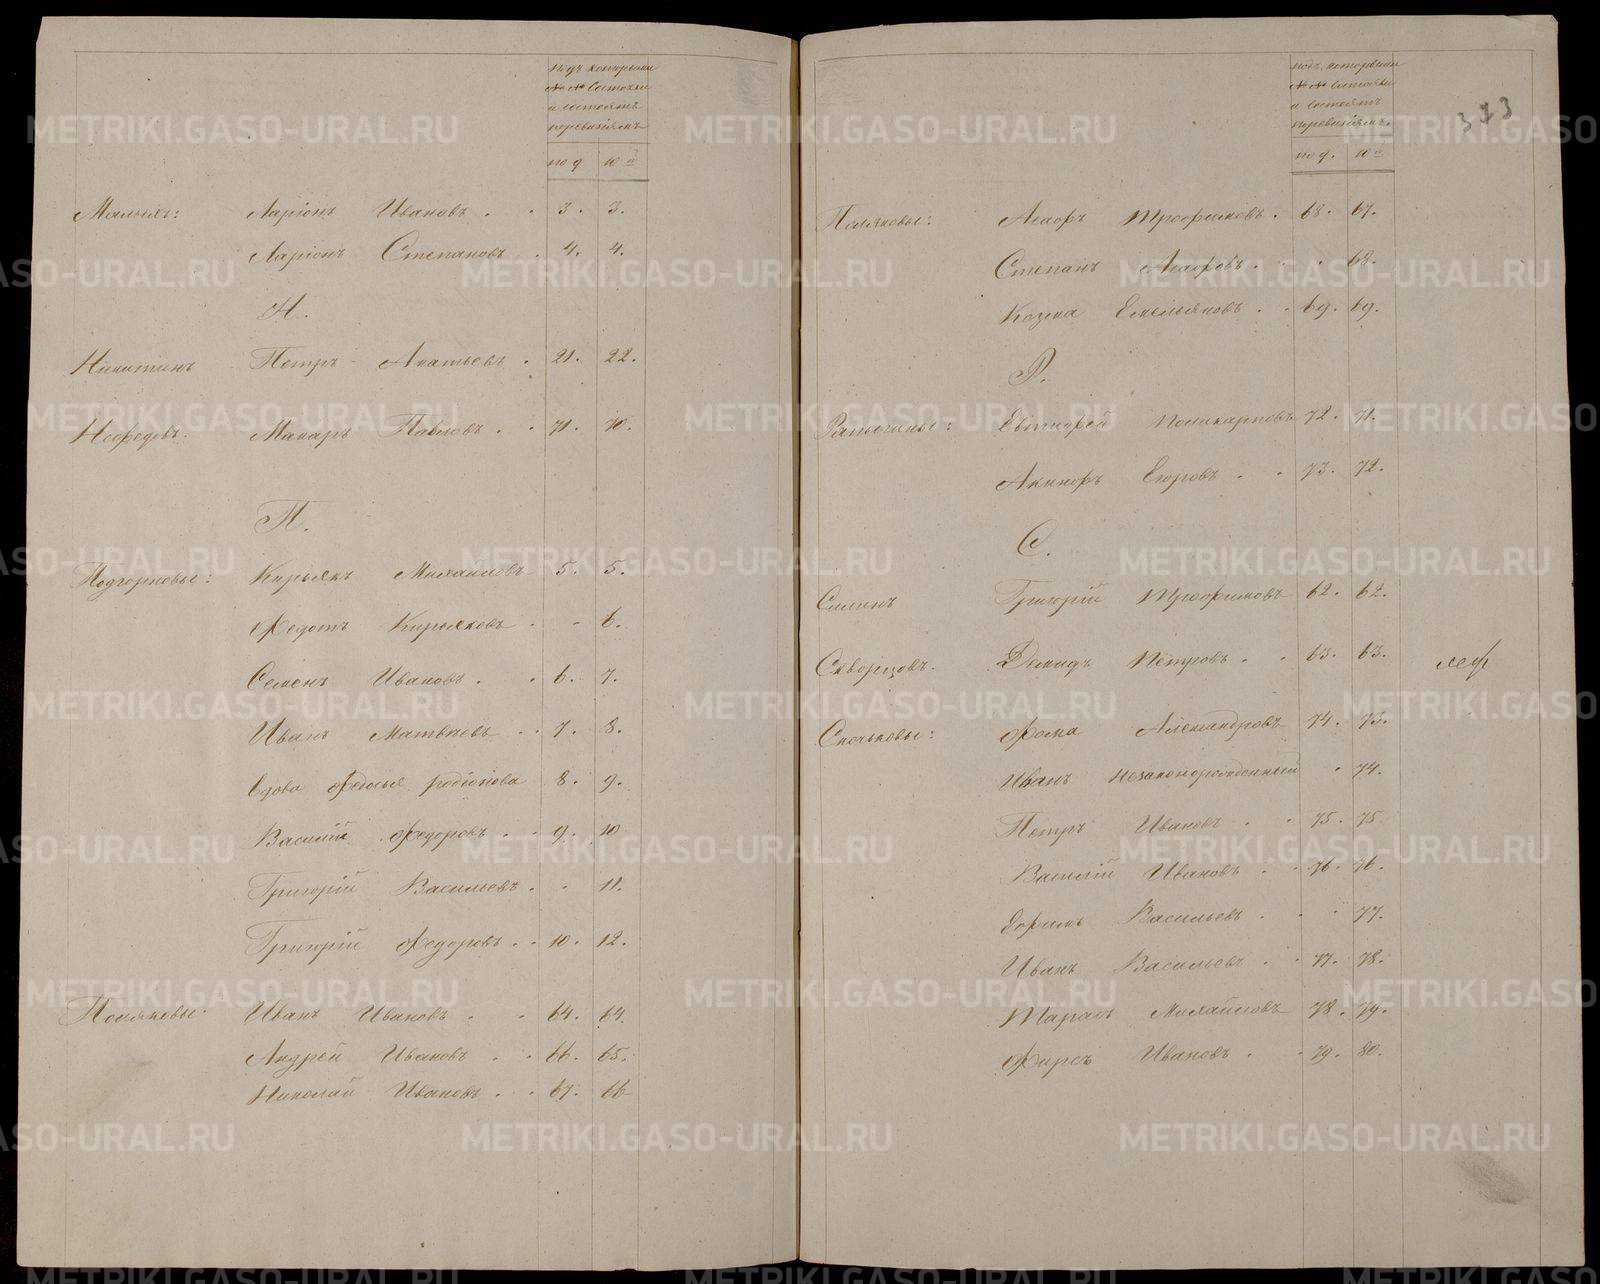 Подъ которыми
№ № Состояли
и состоятъ
по ревизіямъ
по 9 10й
Малыхъ: Ларіонъ Ивановъ . . 3. 3.
Ларіонъ Степановъ . 4. 4.
Н.
Никитинъ Петръ Ипатьевъ . 21. 22.
Нефедовъ. Макаръ Павловъ . . 71. 70.
П.
Подгорновы: Кирьякъ Михаиловъ 5. 5.
Федотъ Кирьяковъ . . 6.
Семенъ Ивановъ . . 6. 7.
Иванъ Матвѣевъ . . 7. 8.
Вдова родіонова 8. 9.
Василій Федоровъ . . 9. 10
Григорій Васильевъ . . 11.
Григорій Федоровъ . . 10. 12.
Поляковы: Иванъ Ивановъ . . 64. 64.
Андрей Ивановъ . . 66. 65.
Николай Ивановъ . . 67. 66
подъ которыми
№ № Состояли
и состоятъ
по ревизіямъ.
по 9. 10й
373
Поляковы: Агафъ Трофимовъ . 68. 67.
Степанъ Агафовъ . . 68.
Козма Емельяновъ . . 69. 69.
Р.
Поликарповъ 72. 71.
Егоровъ . . 73. 72.
С.
Силинъ Григорій Трофимовъ 62. 62.
Скворцовъ. Демидъ Петровъ . . 63. 63.
Фома Александровъ 74. 73.
Иванъ Незаконорожденный . 74.
Петръ Ивановъ . . 75. 75
Василій Ивановъ . . 76. 76.
Ефимъ Васильевъ . . . 77.
Иванъ Васильевъ . . 77. 78.
Тарасъ Михайловъ 78. 79.
Фирсъ Ивановъ . . 79. 80.
METRIKI.GASO-URAL.RU